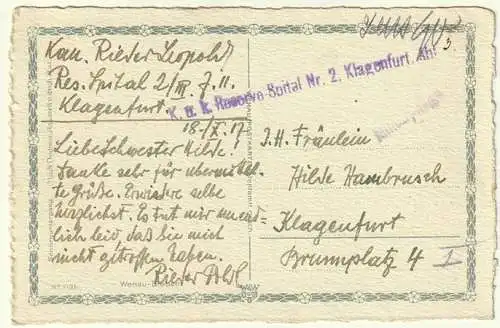 Kan. Rieder Leopold
Res. Spital 2/III Z. 11.
Klagenfurt.
18./X. 17
K. u. k. Reserve-Spital Nr. 2, Klagenfurt, Abt.
3
Liebe Schwester Hilde!
Danke sehr für übermittel-
te Grüße. Erwidere selbe
herzlichst. Es tut mir unend-
lich leid, daß Sie mich
nicht getroffen haben.
Rieder Pold.
I. H. Fräulein
Hilde Hambrusch
Klagenfurt
Brunnplatz 4
I